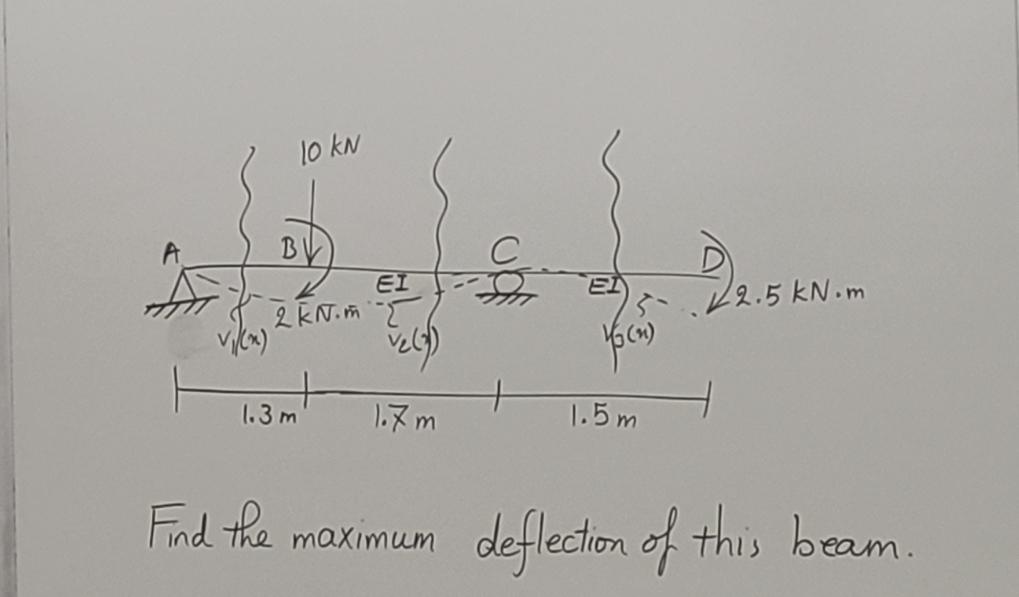 10 kN
A
B
C
D
EI
EI
2 kN.m
2.5 kN.m
V1(x)
V2(x)
V3(x)
1.3 m
1.7 m
1.5 m
Find the maximum deflection of this beam.